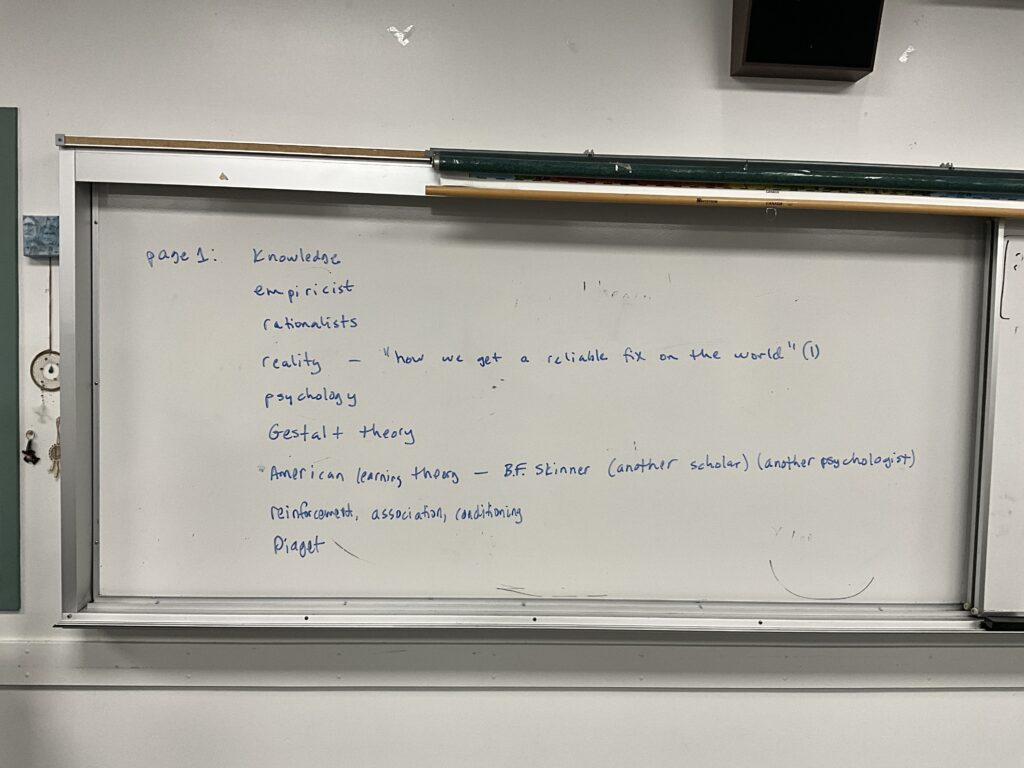 page 1: Knowledge
empiricist
rationalists
reality — "how we get a reliable fix on the world" (1)
psychology
Gestalt theory
American learning theory — B.F. Skinner (another scholar) (another psychologist)
reinforcement, association, conditioning
Piaget
CANADA